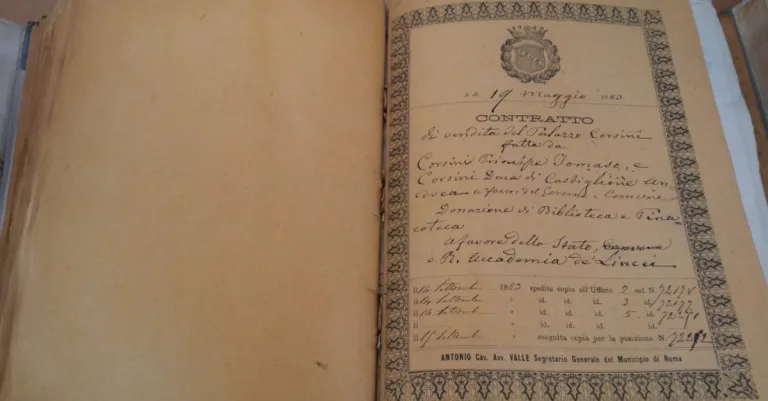 19 maggio 1883
CONTRATTO
di vendita del Palazzo Corsini
fatta da
Corsini Principe Tomaso, e
Corsini Duca di Castiglione An
drea a favore del Governo e Comune
Donazione di Biblioteca e Pina
coteca
a favore dello Stato,
e R. Accademia de' Lincei
Il 14 Settembre 1883 spedita copia all'Ufficio 2 col N. 72178
Il 14 Settembre " id. id. id. 3 id. 72177
Il 14 Settembre " id. id. id. 5 id.
Il " id. id. id. id.
Il 15 Settembre " eseguita copia per la posizione N.
ANTONIO Cav. Avv. VALLE Segretario Generale del Municipio di Roma